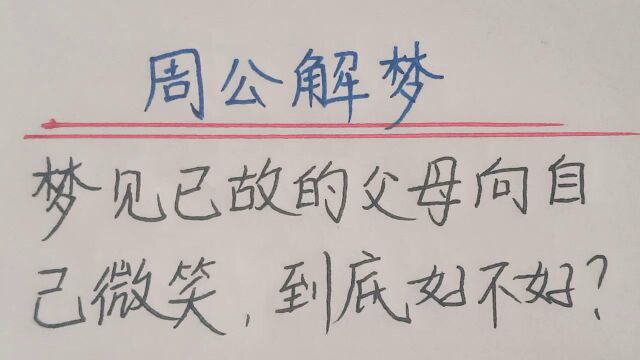 周公解梦
梦见已故的父母向自
己微笑，到底好不好？